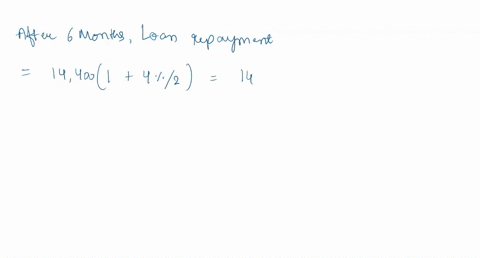 After 6 Months, Loan repayment
= 14,400(1 + 4%/2) = 14